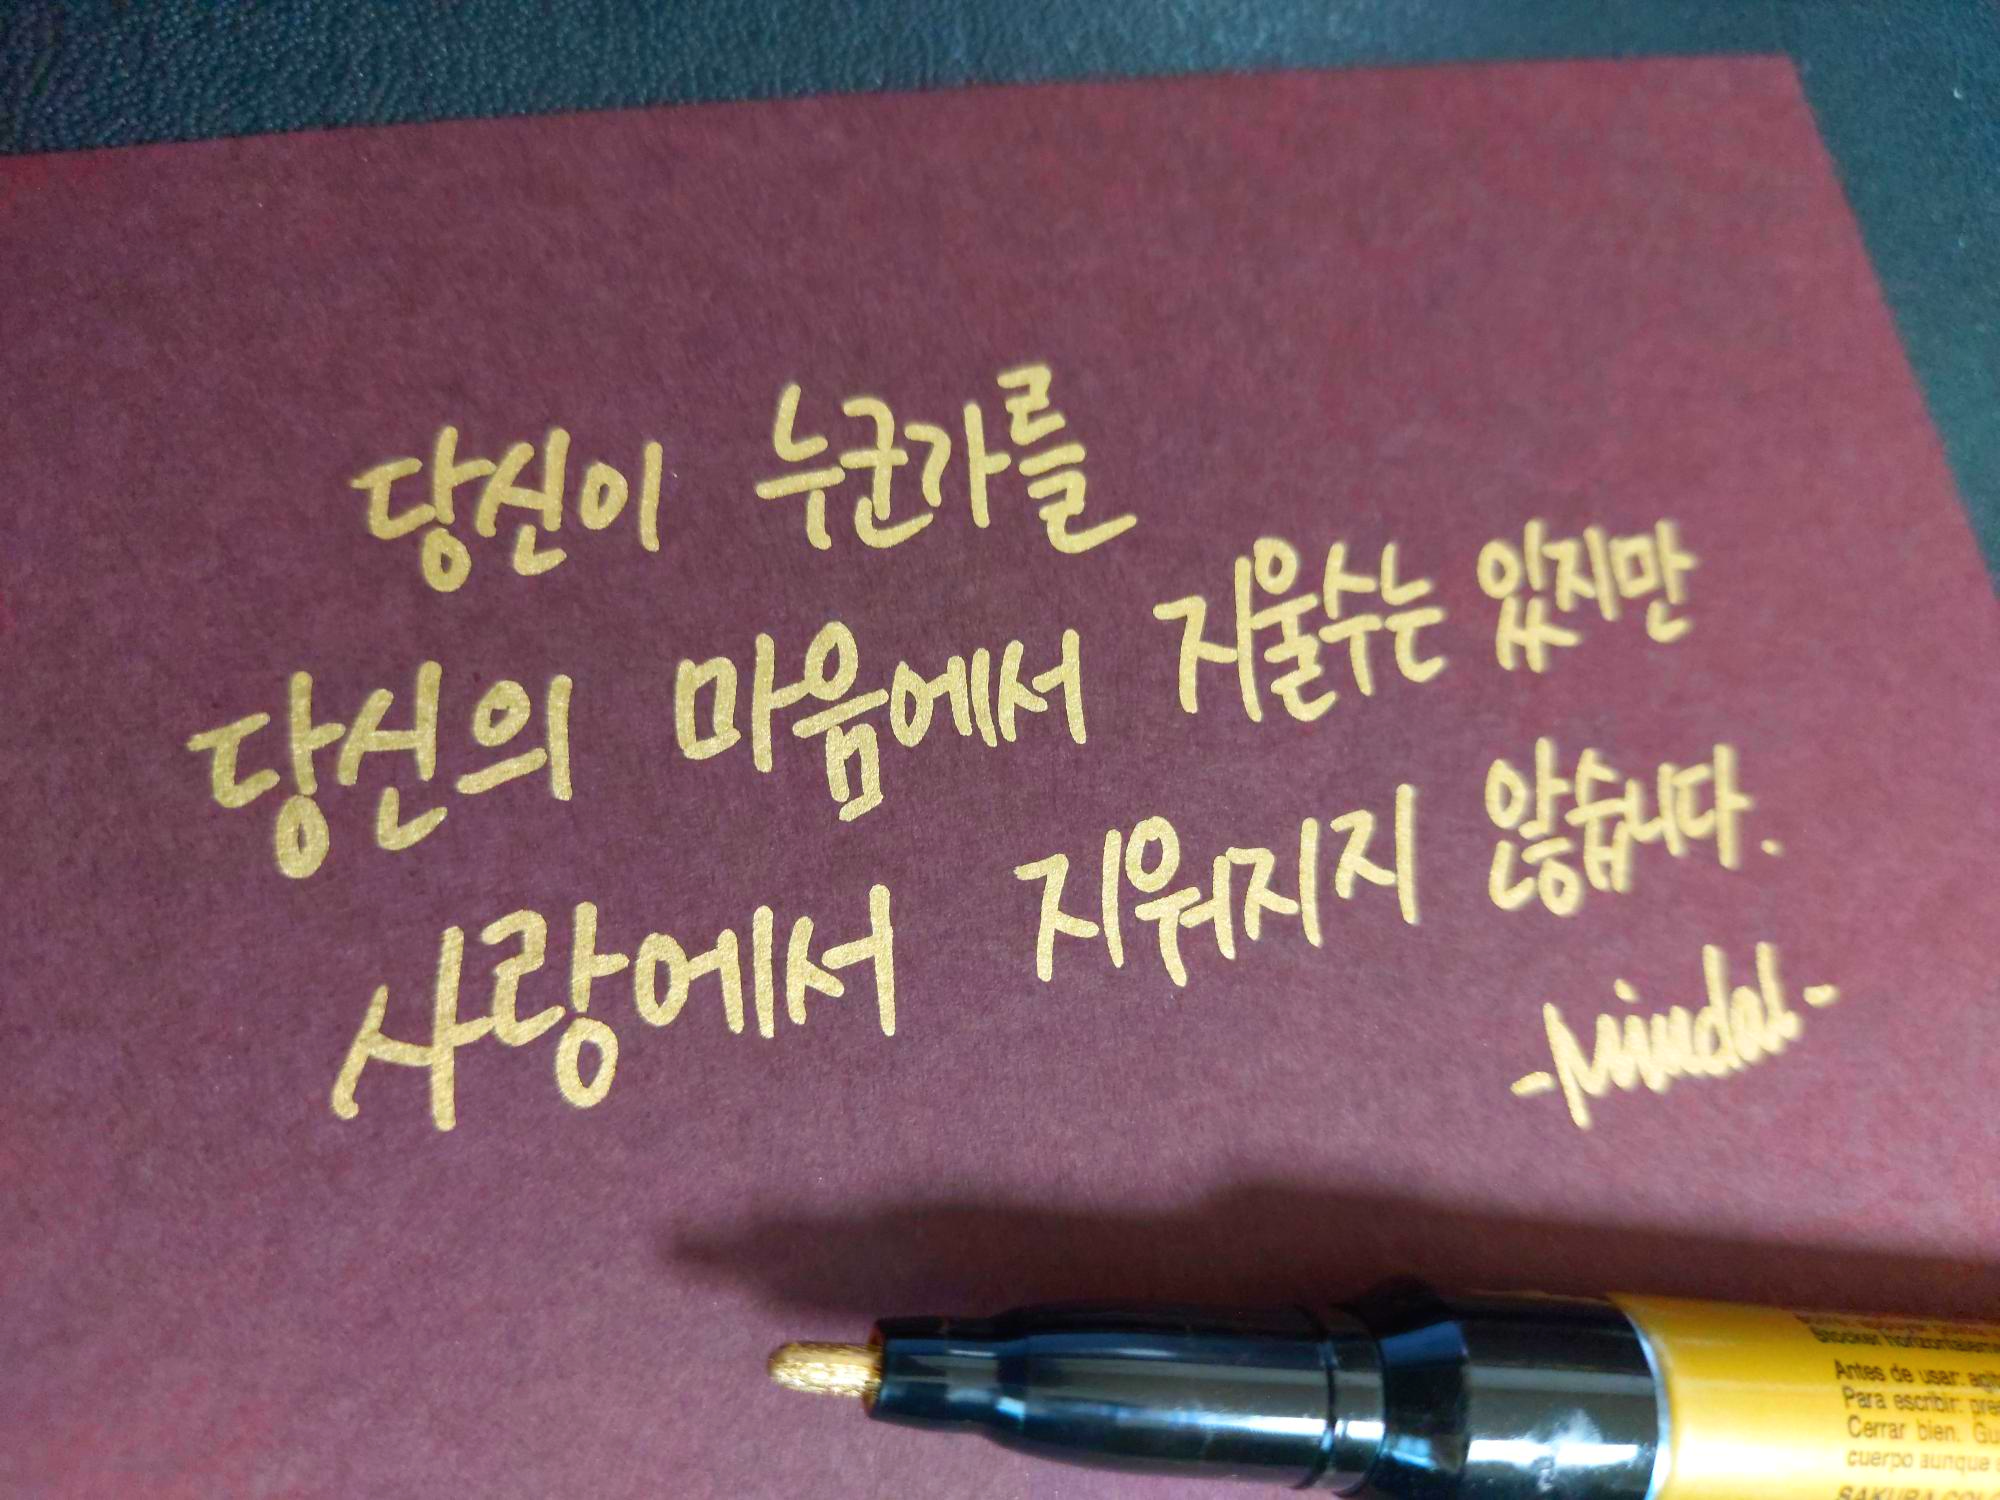 당신이 누군가를
당신의 마음에서 지울수는 있지만
사랑에서 지워지지 않습니다.
-Mindal-
Stocker horizontaleme
Antes de usar: agit
Para escribir: pre
Cerrar bien. Gu
cuerpo aunque s
SAKURA COLO